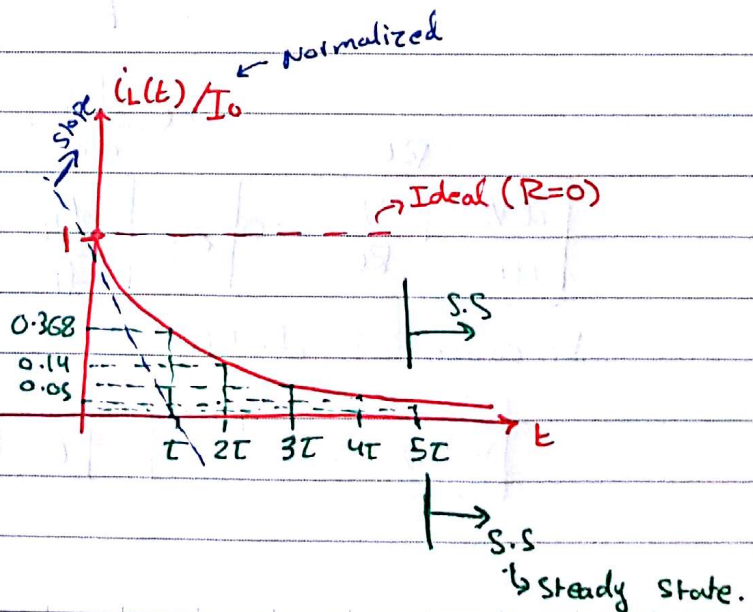 Normalized
iL(t)/I0
Slope
Ideal (R=0)
1
S.S
0.368
0.14
0.05
t
τ 2τ 3τ 4τ 5τ
S.S
Steady state.